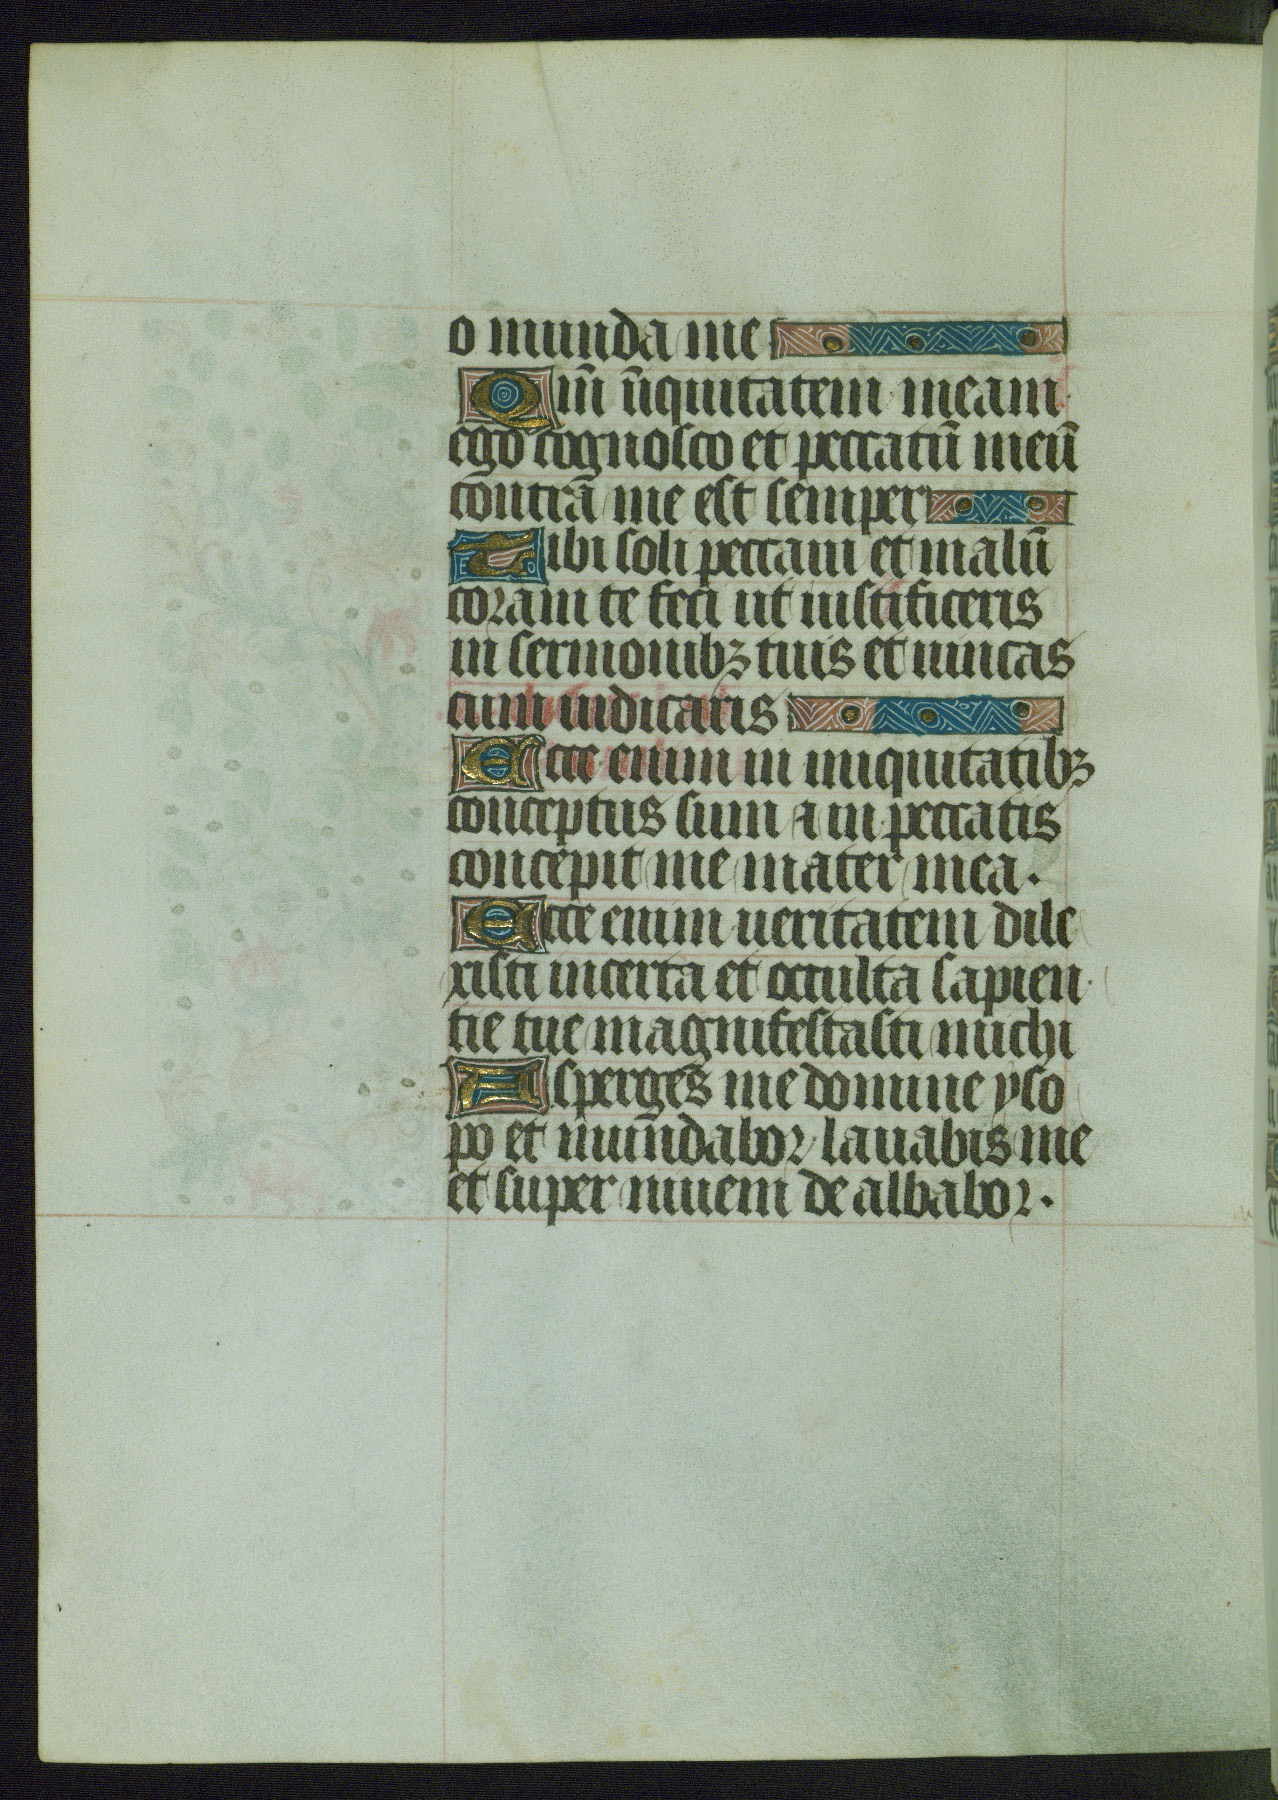 o munda me
Qm̄ ūquitatem meam
ego cognosco et peccatū meū
contra me est semper
Tibi soli peccaui et malū
coram te feci ut iustificeris
in sermonibꝫ tuis et uincas
cum iudicaris
Ecce enim in iniquitatibꝫ
conceptus sum ⁊ in peccatis
concepit me mater mea.
Ecce enim ueritatem dile
xisti incerta et occulta sapien
tie tue magnifestasti michi
Asperges me domine yso
po et mundabor lauabis me
et super niuem de albabor.